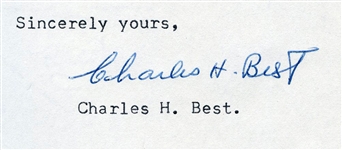 Sincerely yours,
Charles H. Best
Charles H. Best.